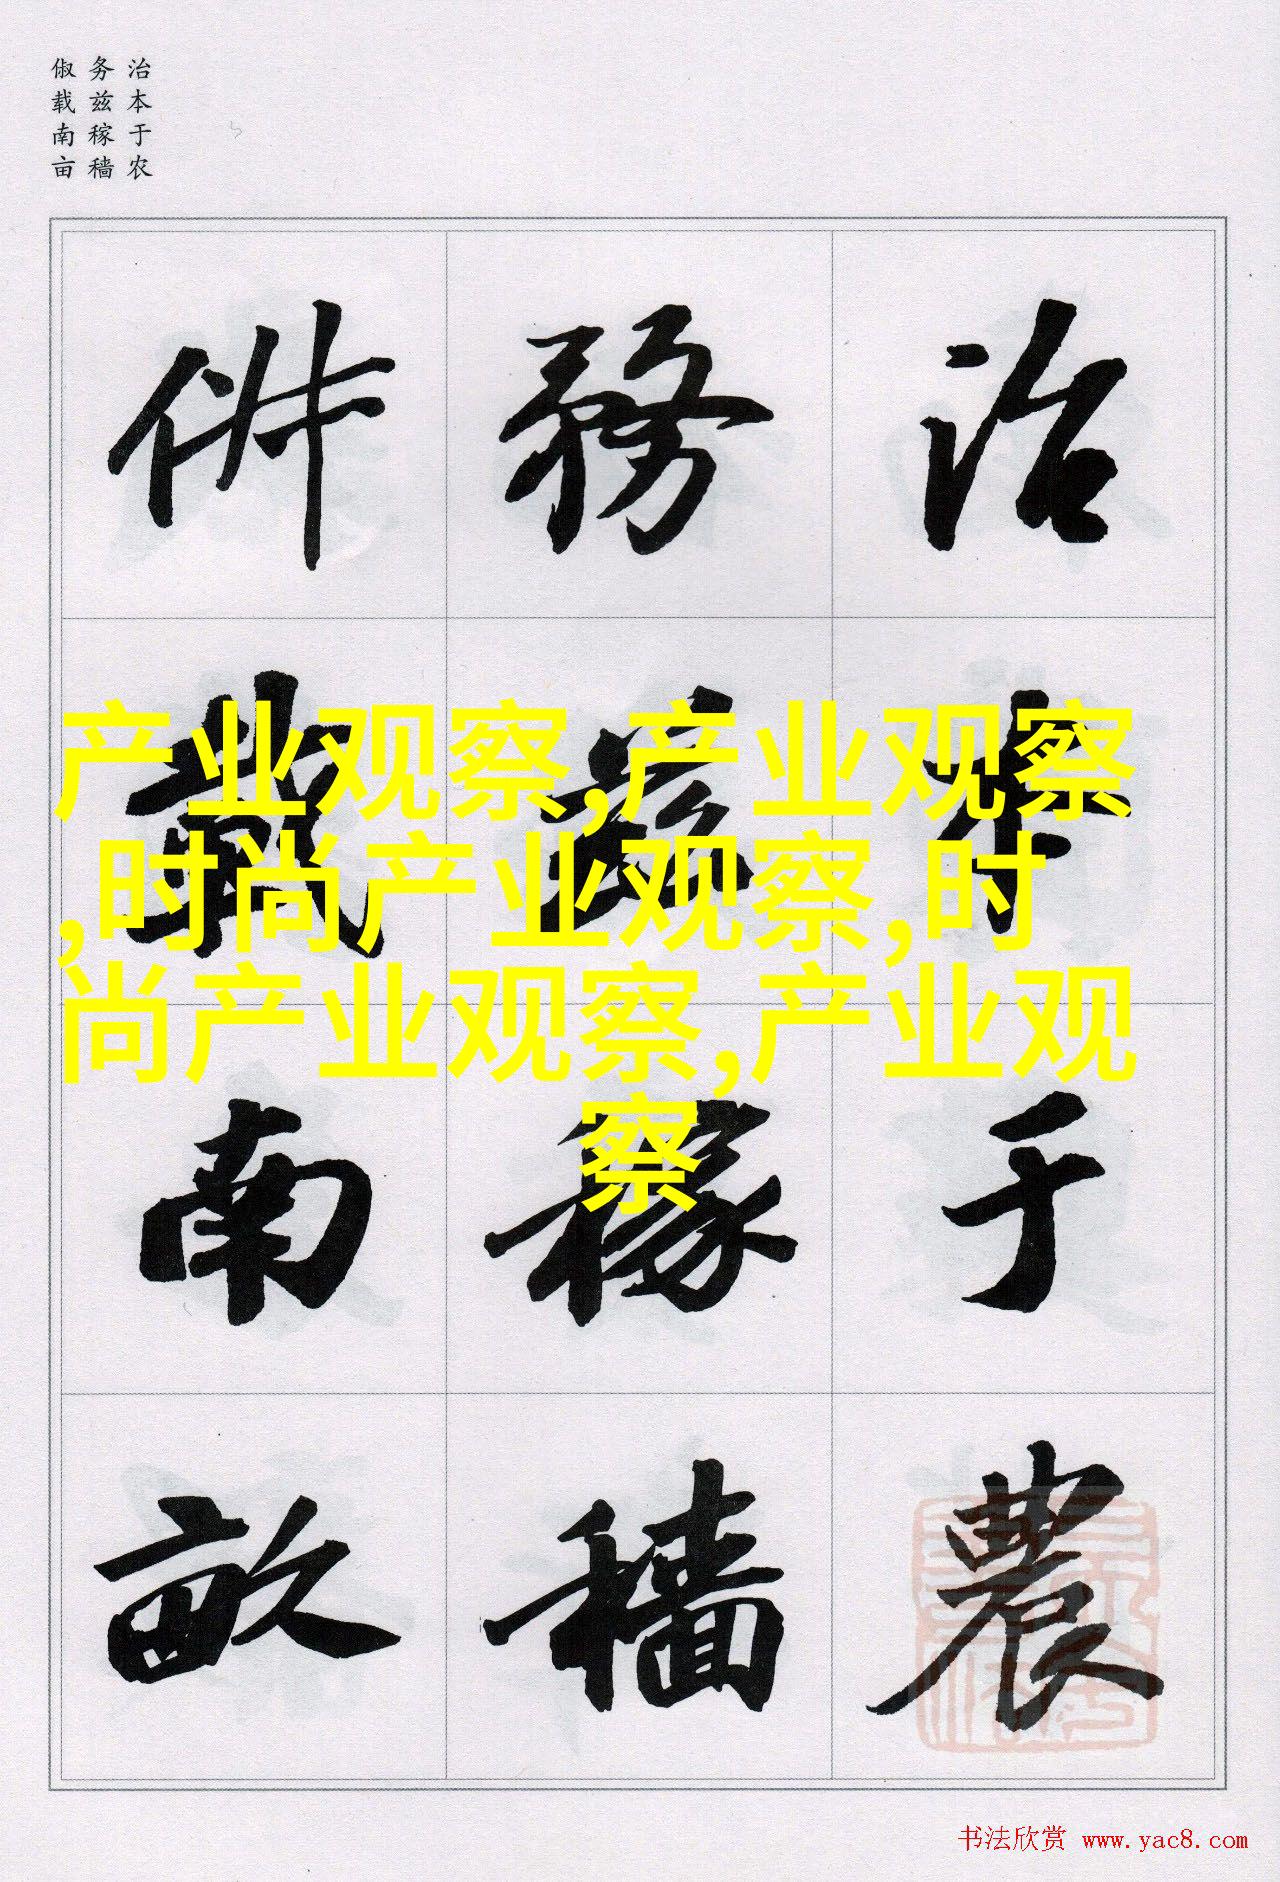 治本于农
务兹稼穑
俶载南亩
治本于農
務兹稼穡
俶載南畝
产业观察,产业观察
,时尚产业观察,时
尚产业观察,产业观
察
书法欣赏 www.yac8.com